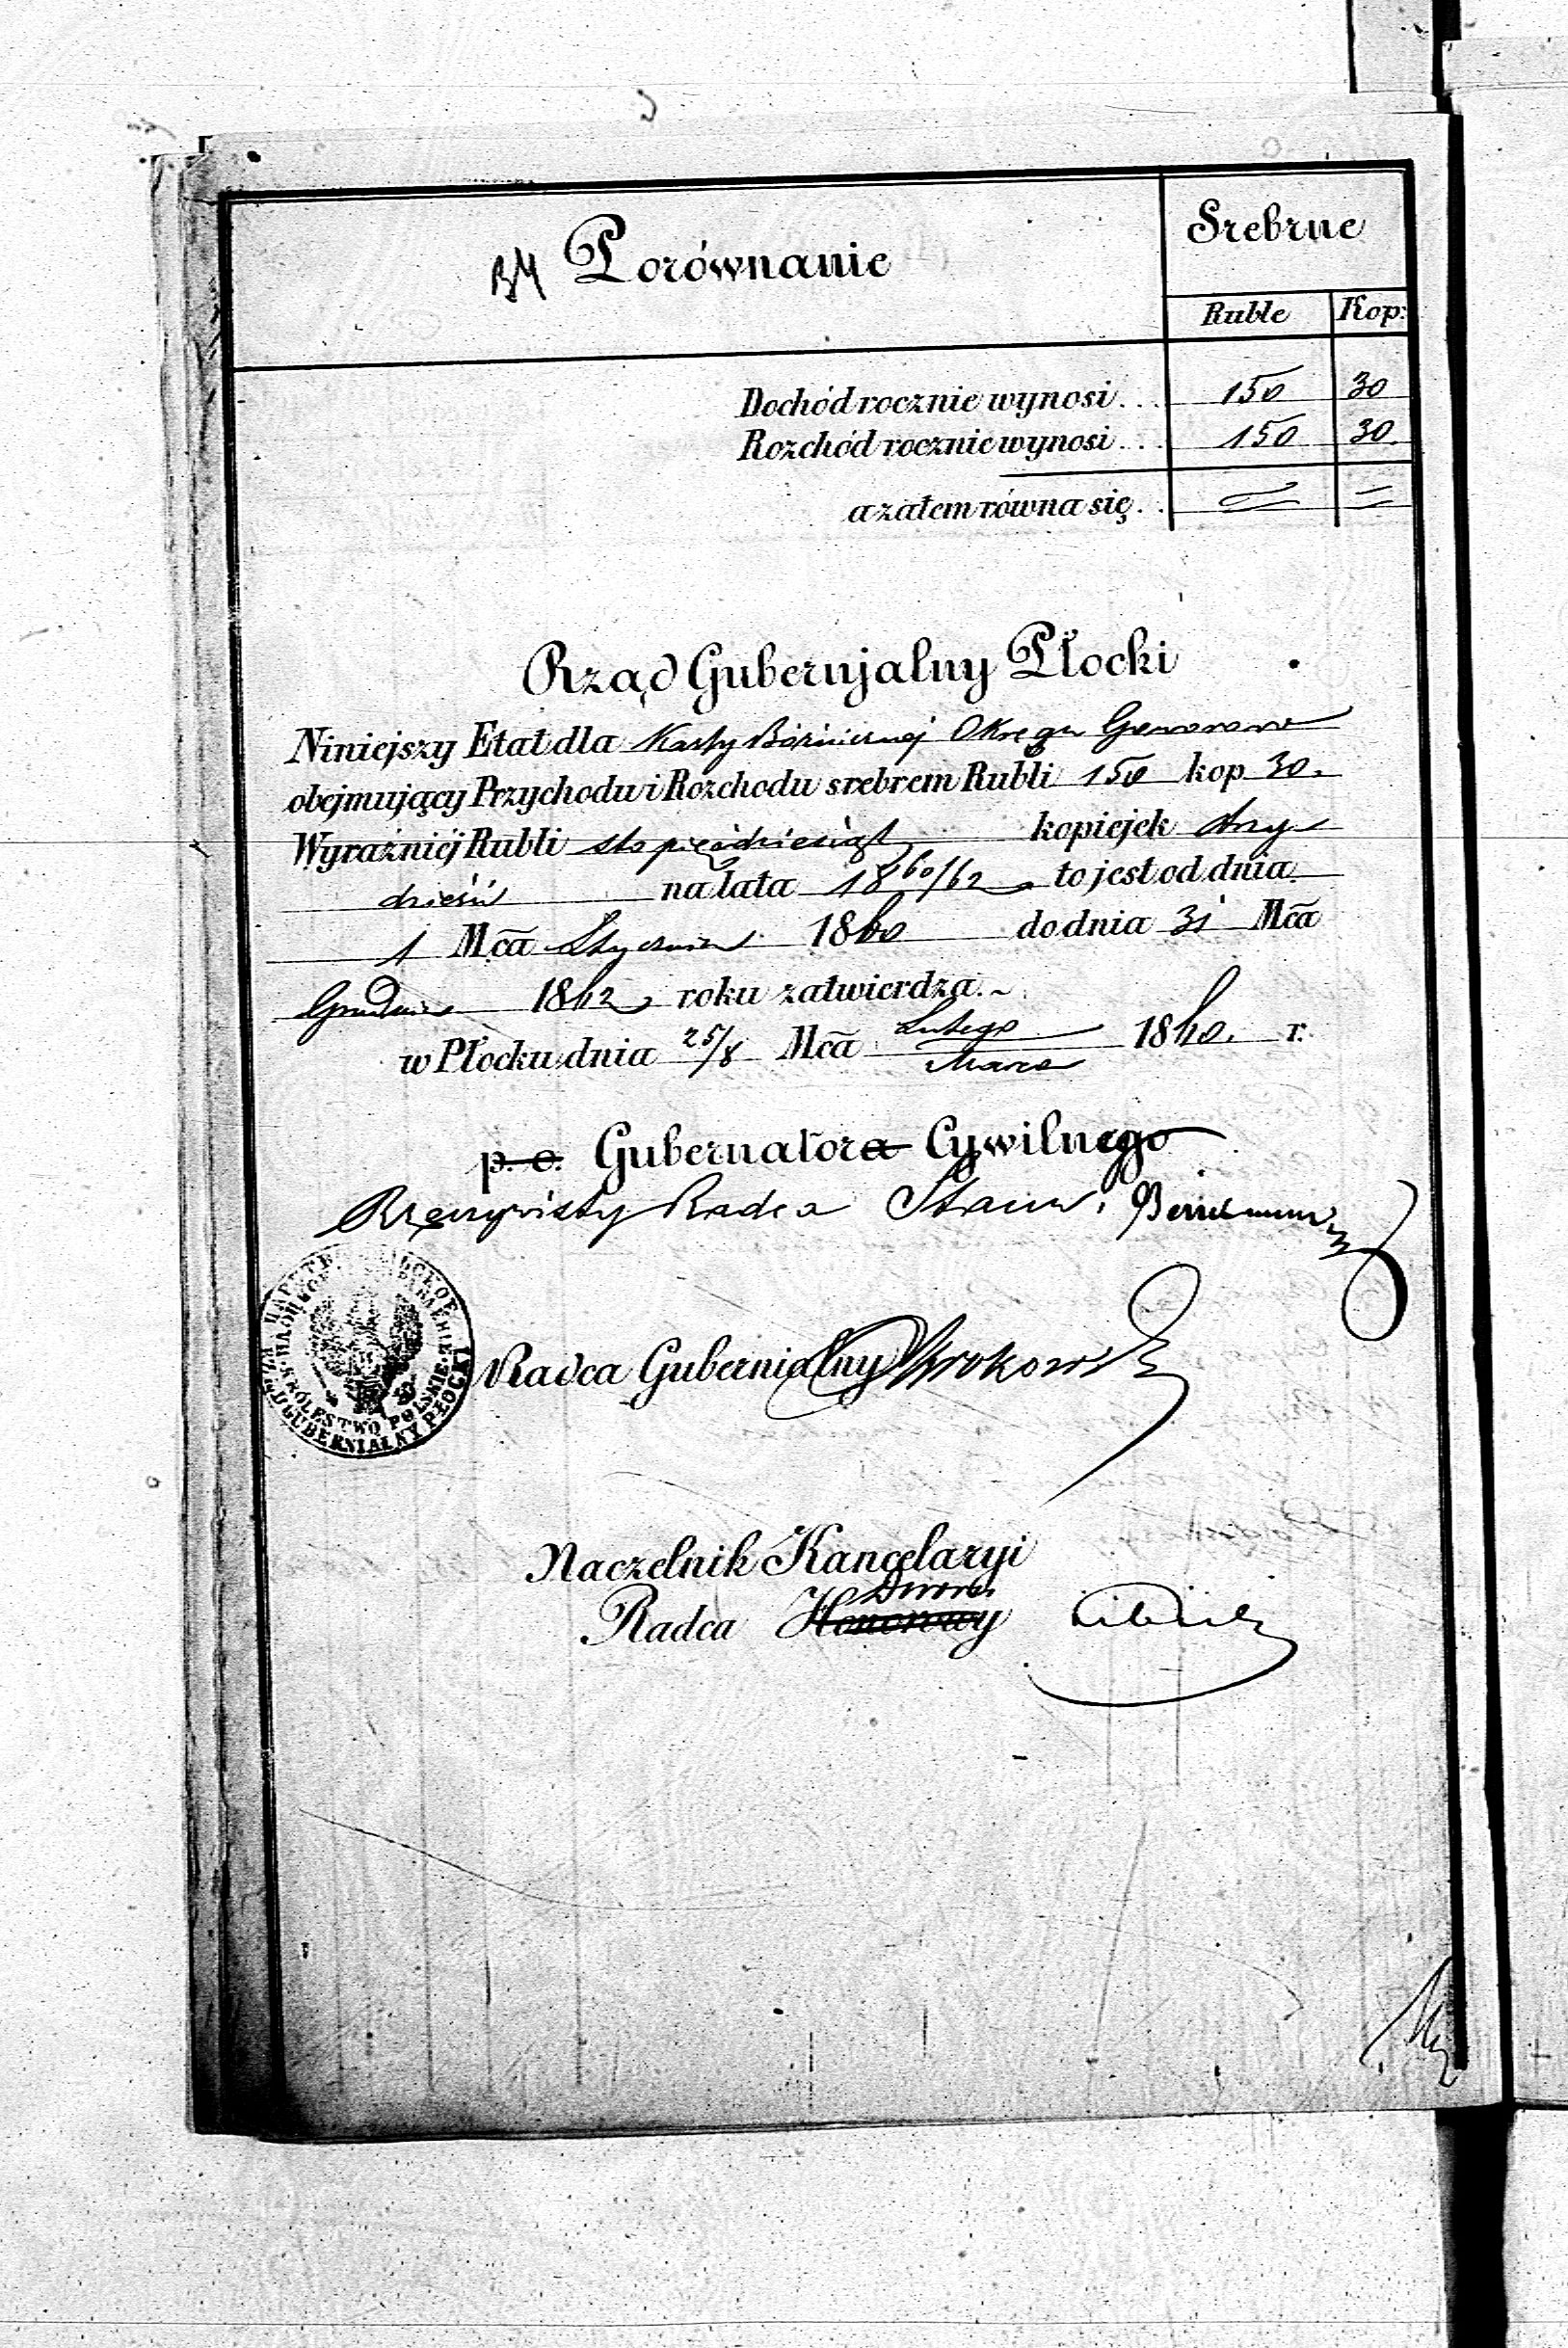 Porównanie
Srebrne
Ruble Kop:
Dochód rocznie wynosi... 150 30
Rozchód rocznie wynosi... 150 30.
a zatem równa się.. = =
Rząd Gubernjalny Płocki
Niniejszy Etat dla Kassy Bóżnicznej Okręgu
obejmujący Przychodu i Rozchodu srebrem Rubli 150 kop 30.
Wyraźniéj Rubli sto pięćdziesiąt kopiejek trzy
dzieści na lata 1860/62 to jest od dnia
1 Mča Stycznia 1860 do dnia 31 Mča
Grudnia 1862 roku zatwierdza.~
w Płocku dnia 25/8 Mča Lutego/Marca 1860. r.
p. o. Gubernatora Cywilnego
Rzeczywisty Radca Stanu,
RZĄD GUBERNIALNY PŁOCKI
KRÓLESTWO POLSKIE
Radca Gubernialny
Naczelnik Kancelaryi
Dworu
Radca Honorowy